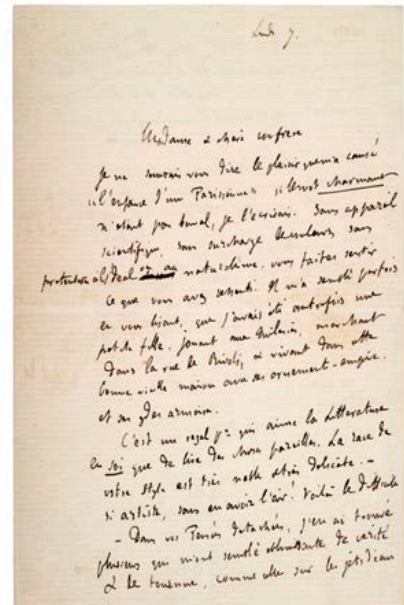 Lundi 7.
Madame & cher confrère
Je ne saurais vous dire le plaisir que m'a causé
« l'enfance d'une Parisienne » si le mot charmant
n'était pas banal, je l'écrirais. Sans appareil
scientifique, sans surcharge de couleurs, sans
prétention à l'Idéal ou au naturalisme, vous faites sentir
ce que vous avez ressenti. Il m'a semblé parfois
en vous lisant, que j'avais été autrefois une
petite fille, jouant aux Tuileries, marchant
dans la rue de Rivoli, & vivant dans cette
bonne vieille maison avec ses ornements-empire.
et ses gdes armoires.
C'est un régal pr qui aime la littérature
en soi que de lire des choses pareilles. La race de
votre style est très noble & très délicate. –
si artiste, sans en avoir l'air! Voilà le difficile
– Dans vos Pensées détachées, j'en ai trouvé
plusieurs qui m'ont semblé de vérité
& de comme celle sur les jets d'eau